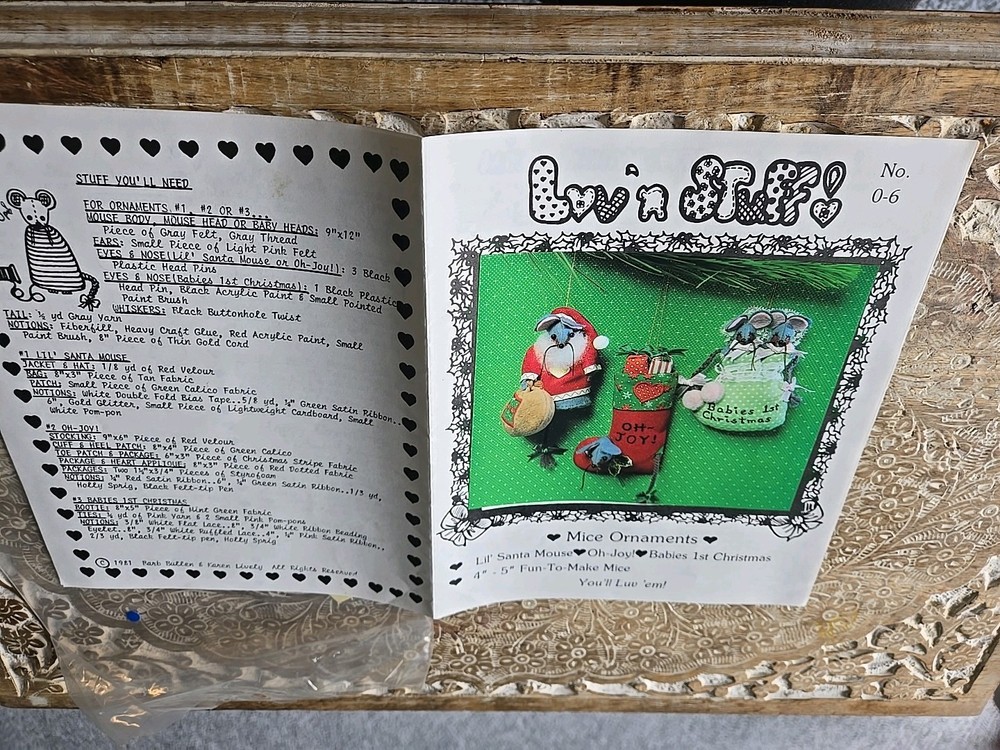 STUFF YOU'LL NEED
FOR ORNAMENTS, #1, #2 OR #3...
MOUSE BODY, MOUSE HEAD OR BABY HEADS: 9"x12"
Piece of Gray Felt, Gray Thread
EARS: Small Piece of Light Pink Felt
EYES & NOSE(Lil' Santa Mouse or Oh-Joy!): 3 Black
Plastic Head Pins
EYES & NOSE(Babies 1st Christmas): 1 Black Plastic
Head Pin, Black Acrylic Paint & Small Pointed
Paint Brush
WHISKERS: Black Buttonhole Twist
TAIL: yd Gray Yarn
NOTIONS: Fiberfill, Heavy Craft Glue, Red Acrylic Paint, Small
Paint Brush, 8" Piece of Thin Gold Cord
#1 LIL' SANTA MOUSE
JACKET & HAT: 1/8 yd of Red Velour
BAG: 8"x3" Piece of Tan Fabric
PATCH: Small Piece of Green Calico Fabric
NOTIONS: White Double Fold Bias Tape..5/8 yd, Green Satin Ribbon..
6", Gold Glitter, Small Piece of Lightweight Cardboard, Small
White Pom-pon
#2 OH-JOY!
STOCKING: 9"x6" Piece of Red Velour
CUFF & HEEL PATCH: 8"x4" Piece of Green Calico
TOE PATCH & PACKAGE: 6"x3" Piece of Christmas Stripe Fabric
PACKAGE & HEART APPLIQUE: 8"x3" Piece of Red Dotted Fabric
PACKAGES: Two Pieces of Styrofoam
NOTIONS: Red Satin Ribbon..6", Green Satin Ribbon..1/3 yd,
Holly Sprig, Black Felt-tip Pen
#3 BABIES 1ST CHRISTMAS
BOOTIE: 8"x5" Piece of Mint Green Fabric
TIES: yd of Pink Yarn & 2 Small Pink Pom-pons
NOTIONS: 3/8" White Flat Lace..8", 3/4" White Ribbon Beading
Eyelet..8", 3/4" White Ruffled Lace..4", Pink Satin Ribbon..
2/3 yd, Black Felt-tip pen, Holly Sprig
© 1981 Barb Butten & Karen Lively All Rights Reserved
Luv 'n STUFF!
No.
0-6
OH-
JOY!
Babies 1st
Christmas
♥ Mice Ornaments ♥
♥ Lil' Santa Mouse♥Oh-Joy!♥Babies 1st Christmas
♥ 4" - 5" Fun-To-Make Mice
You'll Luv 'em!